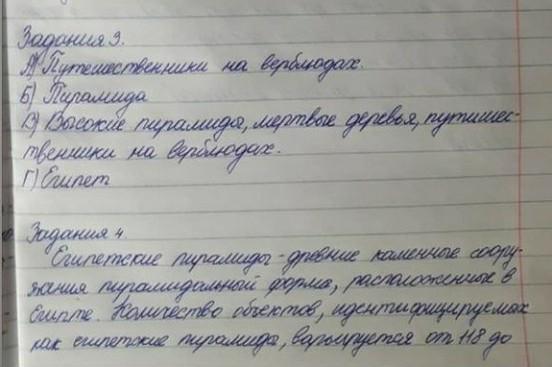 Задания 3.
А) Путешественники на верблюдах.
Б) Пирамида
В) Высокие пирамида, мертвые деревья, путишес-
твенники на верблюдах.
Г) Египет
Задания 4
Египетские пирамиды - древние каменные соору-
жания пирамидальный форма, расположенные в
Египте. Количество объектов, идентифицируемах
как египетские пирамида, варьируется от 118 до